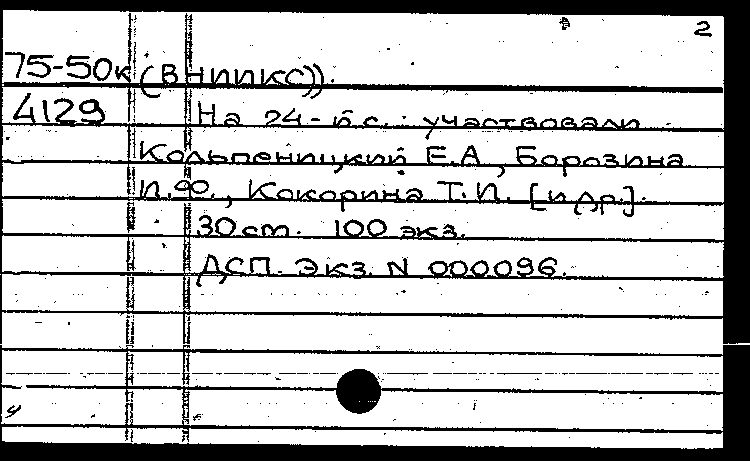 2
75-50к (ВНИИКС)).
4129 На 24-й с.: участвовали
Кольпеницкий Е.А., Борозина
Кокорина Т.И. [и др.].
30 ст. 100 экз.
ДСП. Экз. N 000096.